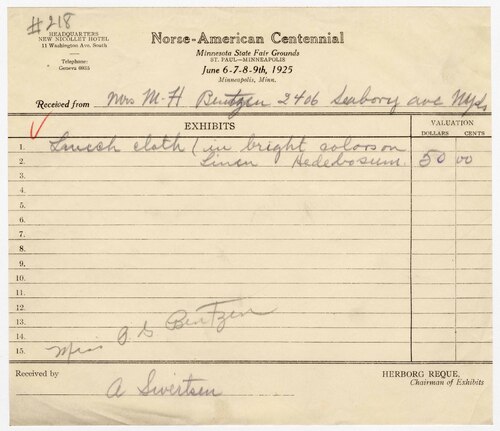 #218
HEADQUARTERS
NEW NICOLLET HOTEL
11 Washington Ave. South
Telephone:
Geneva 4055
Norse-American Centennial
Minnesota State Fair Grounds
ST. PAUL—MINNEAPOLIS
June 6-7-8-9th, 1925
Minneapolis, Minn.
Received from Mrs M-H Bentzen 2406 Seabory ave Mpls
EXHIBITS
VALUATION
DOLLARS CENTS
1. Lunch cloth (in bright colors on
2. Linen Hedebosum. 50 00
3.
4.
5.
6.
7.
8.
9.
10.
11.
12.
13.
14. Bentzen
15. Miss
Received by
A Sivertsen
HERBORG REQUE,
Chairman of Exhibits